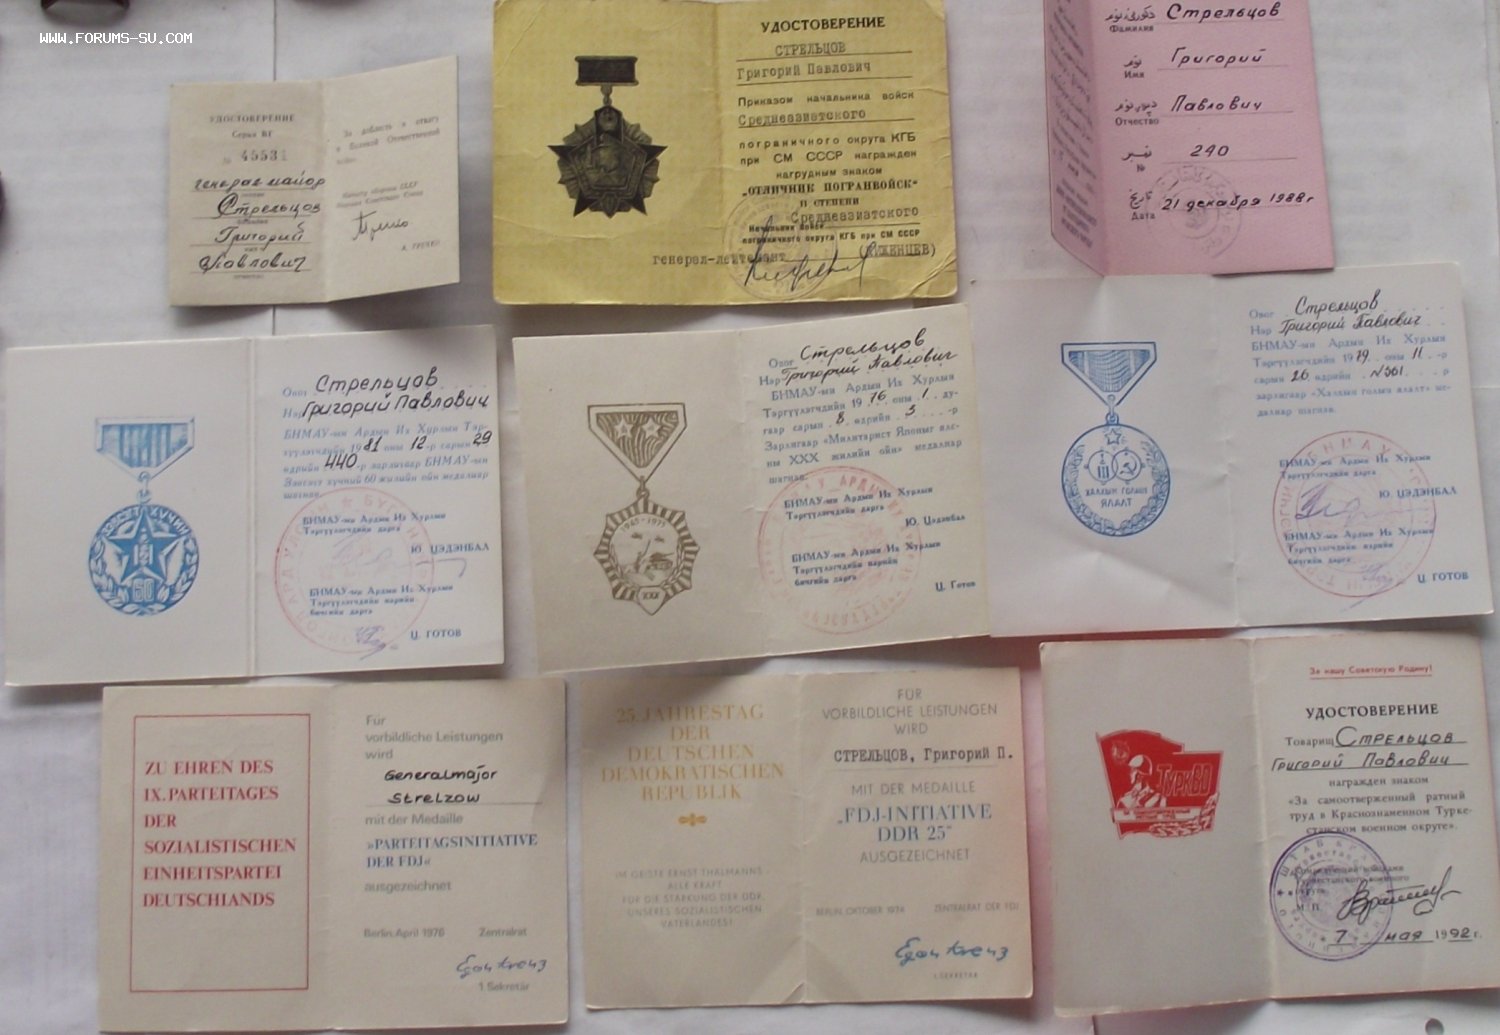 WWW.FORUMS-SU.COM
УДОСТОВЕРЕНИЕ
Серия ВГ
№ 45531
генерал-майор
Стрельцов
Григорий
Павлович
За доблесть и отвагу
в Великой Отечественной
войне
Министр обороны СССР
А. ГРЕЧКО
УДОСТОВЕРЕНИЕ
СТРЕЛЬЦОВ
Григорий Павлович
Приказом начальника войск
Среднеазиатского
пограничного округа КГБ
при СМ СССР награжден
нагрудным знаком
„ОТЛИЧНИК ПОГРАНВОЙСК"
II СТЕПЕНИ
Начальник войск Среднеазиатского
пограничного округа КГБ при СМ СССР
генерал-лейтенант
Стрельцов
Фамилия
Григорий
Имя
Павлович
Отчество
240
№
21 декабря 1988 г
Дата
Овог Стрельцов
Нэр Григорий Павлович
БНМАУ-ын Ардын Их Хурлын Тэр-
гүүлэгчдийн 1981 оны 12-р сарын 29
өдрийн 440-р зарлигаар БНМАУ-ын
Зэвсэгт хүчний 60 жилийн ойн медалиар
шагнав.
БНМАУ-ын Ардын Их Хурлын
Тэргүүлэгчдийн дарга
Ю. ЦЭДЭНБАЛ
БНМАУ-ын Ардын Их Хурлын
Тэргүүлэгчдийн нарийн
бичгийн дарга
Ц. ГОТОВ
60
Овог Стрельцов
Нэр Григорий Павлович
БНМАУ-ын Ардын Их Хурлын
Тэргүүлэгчдийн 1976 оны 1 ду-
гаар сарын 8 өдрийн 3 -р
Зарлигаар «Милитарист Японыг ялс-
ны XXX жилийн ойн» медалиар
шагнав.
БНМАУ-ын Ардын Их Хурлын
Тэргүүлэгчдийн дарга
Ю. Цэдэнбал
БНМАУ-ын Ардын Их Хурлын
Тэргүүлэгчдийн нарийн
бичгийн дарга
Ц. Готов
XXX
Овог Стрельцов
Нэр Григорий Павлович
БНМАУ-ын Ардын Их Хурлын
Тэргүүлэгчдийн 1979 оны 11 -р
сарын 26 өдрийн №361 -р
зарлигаар «Халхын голын ялалт» ме-
далиар шагнав.
ХАЛХЫН ГОЛЫН
ЯЛАЛТ
БНМАУ-ын Ардын Их Хурлын
Тэргүүлэгчдийн дарга
Ю. ЦЭДЭНБАЛ
БНМАУ-ын Ардын Их Хурлын
Тэргүүлэгчдийн нарийн
бичгийн дарга
Ц. ГОТОВ
ZU EHREN DES
IX. PARTEITAGES
DER
SOZIALISTISCHEN
EINHEITSPARTEI
DEUTSCHLANDS
Für
vorbildliche Leistungen
wird
Generalmajor
Strelzow
mit der Medaille
»PARTEITAGSINITIATIVE
DER FDJ«
ausgezeichnet
Berlin, April 1976 Zentralrat
Egon Krenz
1. Sekretär
25. JAHRESTAG
DER
DEUTSCHEN
DEMOKRATISCHEN
REPUBLIK
IM GEISTE ERNST THÄLMANNS -
ALLE KRAFT
FÜR DIE STÄRKUNG DER DDR,
UNSERES SOZIALISTISCHEN
VATERLANDES!
FÜR
VORBILDLICHE LEISTUNGEN
WIRD
СТРЕЛЬЦОВ, Григорий П.
MIT DER MEDAILLE
„FDJ-INITIATIVE
DDR 25"
AUSGEZEICHNET
BERLIN, OKTOBER 1974 ZENTRALRAT DER FDJ
Egon Krenz
1. SEKRETÄR
ТУРКВО
За нашу Советскую Родину!
УДОСТОВЕРЕНИЕ
Товарищ Стрельцов
Григорий Павлович
награжден знаком
«За самоотверженный ратный
труд в Краснознаменном Турке-
станском военном округе».
М. П.
7 мая 1992 г.